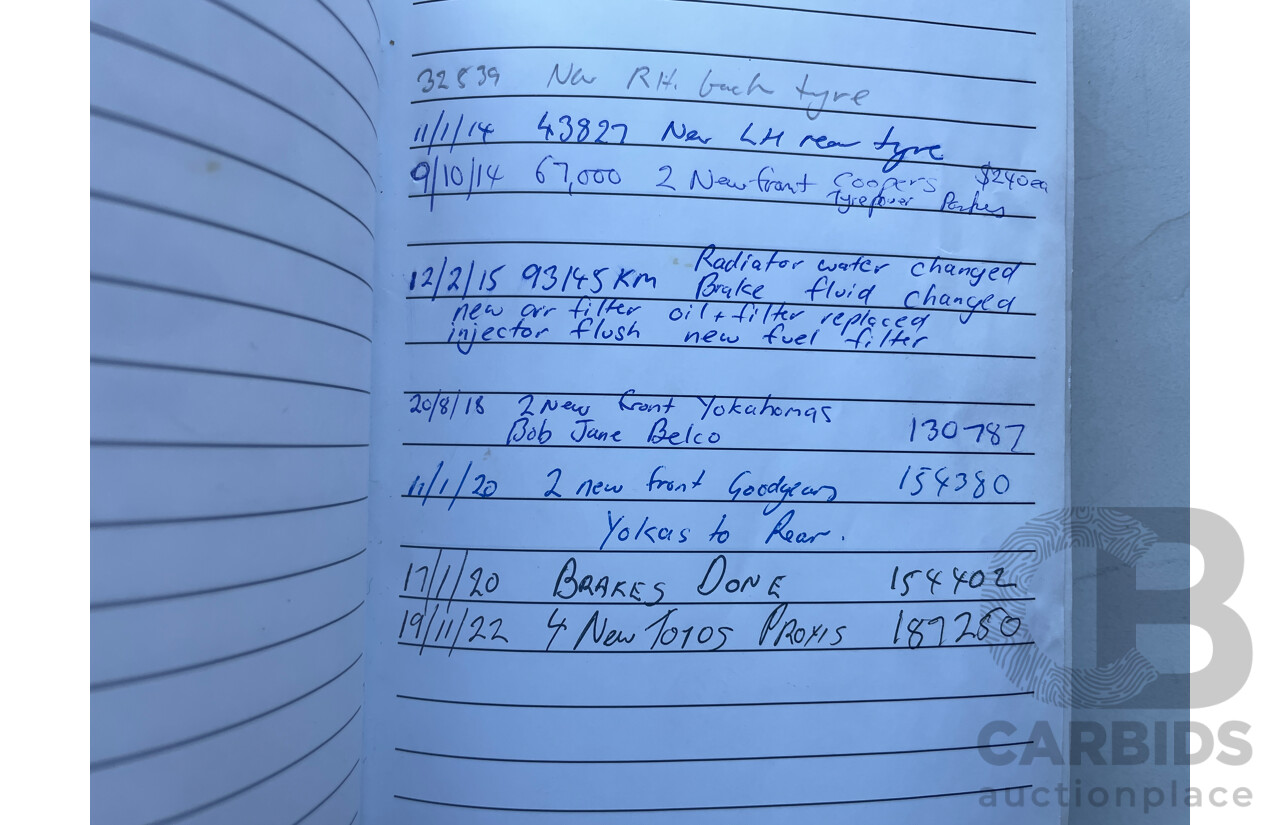 32839 New RH. back tyre
11/1/14 43827 New LH rear tyre
9/10/14 67,000 2 New front Coopers $240ea
Tyrepower Parkes
Radiator water changed
12/2/15 93145 Km Brake fluid changed
new air filter oil + filter replaced
injector flush new fuel filter
20/8/18 2 New front Yokahomas
Bob Jane Belco 130787
11/1/20 2 new front Goodyears 154380
Yokas to Rear.
17/1/20 BRAKES DONE 154402
19/11/22 4 New TOYOS PROXIS 187250
CARBIDS
auctionplace